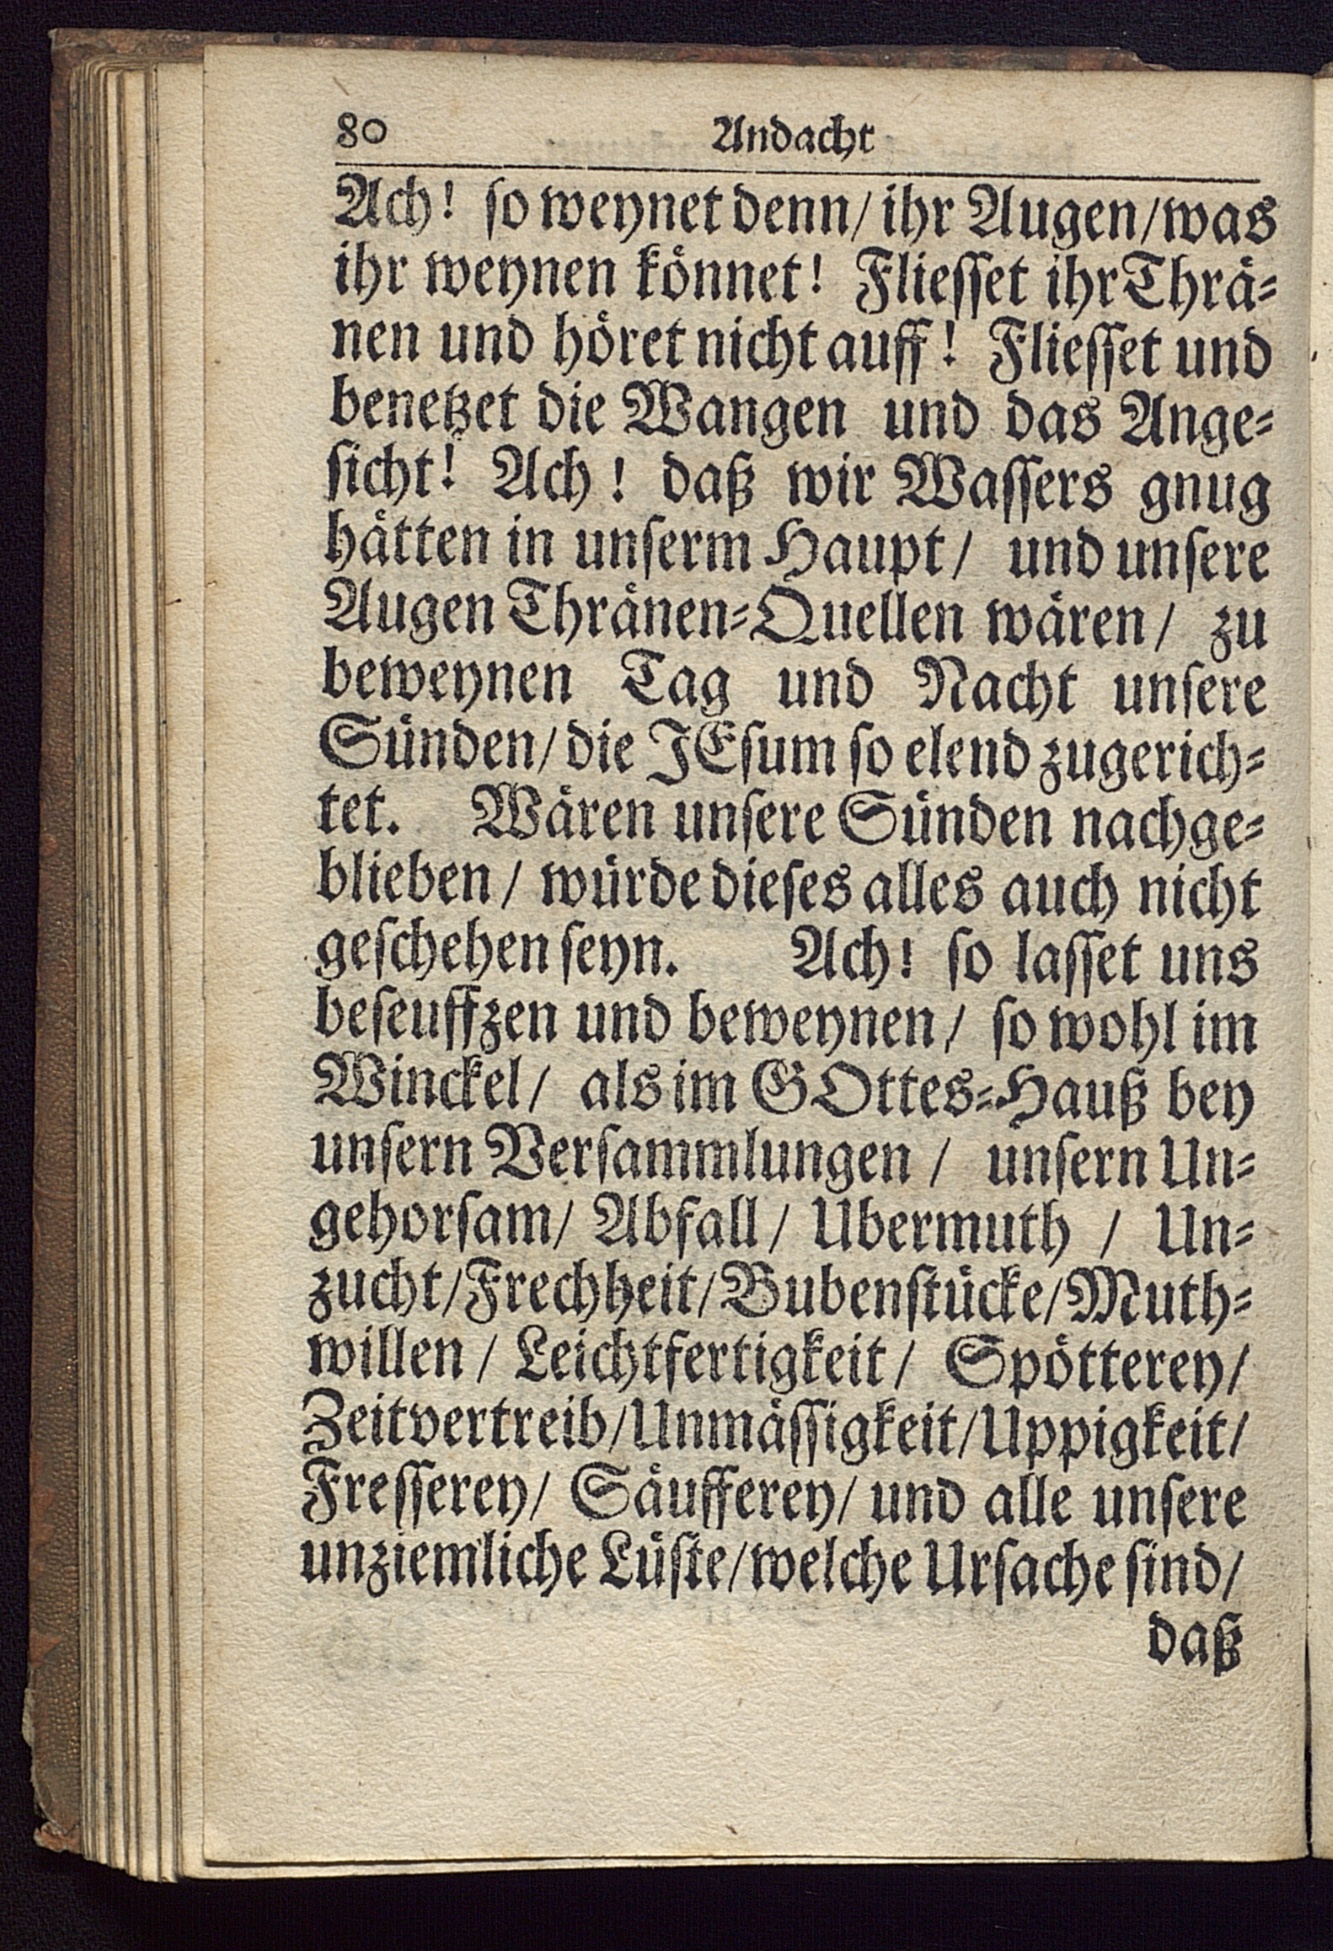 80 Andacht
Ach! ſo weynet denn/ ihr Augen/was
ihr weynen könnet! Flieſſet ihr Thrä⸗
nen und höret nicht auff! Flieſſet und
benetzet die Wangen und das Ange⸗
ſicht! Ach! daß wir Waſſers gnug
hätten in unſerm Haupt/ und unſere
Augen Thränen⸗Quellen wären/ zu
beweynen Tag und Nacht unſere
Sünden/ die JEſum ſo elend zugerich⸗
tet. Wären unſere Sünden nachge⸗
blieben/ würde dieſes alles auch nicht
geſchehen ſeyn. Ach! ſo laſſet uns
beſeuffzen und beweynen/ ſo wohl im
Winckel/ als im GOttes⸗Hauß bey
unſern Verſammlungen/ unſern Un⸗
gehorſam/ Abfall/ Ubermuth/ Un⸗
zucht/Frechheit/Bubenſtücke/Muth⸗
willen/ Leichtfertigkeit/ Spötterey/
Zeitvertreib/Unmäſſigkeit/Uppigkeit/
Freſſerey/ Säufferey/ und alle unſere
unziemliche Lüſte/welche Urſache ſind/
daß